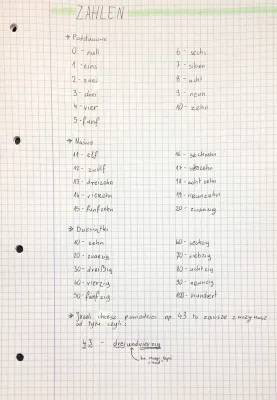 ZAHLEN
0 - null
6 - sechs
1 - eins
7 - sieben
2 - zwei
8 - acht
3 - drei
9 - neun
4 - vier
10 - zehn
5 - fünf
11 - elf
16 - sechzehn
12 - zwölf
17 - siebzehn
13 - dreizehn
18 - achtzehn
14 - vierzehn
19 - neunzehn
15 - fünfzehn
20 - zwanzig
→ Dziesiątki
10 - zehn
60 - sechzig
20 - zwanzig
70 - siebzig
30 - dreißig
80 - achtzig
40 - vierzig
90 - neunzig
50 - fünfzig
100 - hundert
→ Jeżeli chcesz powiedzieć np. 43 to zawsze zaczynasz
od tyłu czyli:
43 - dreiundvierzig